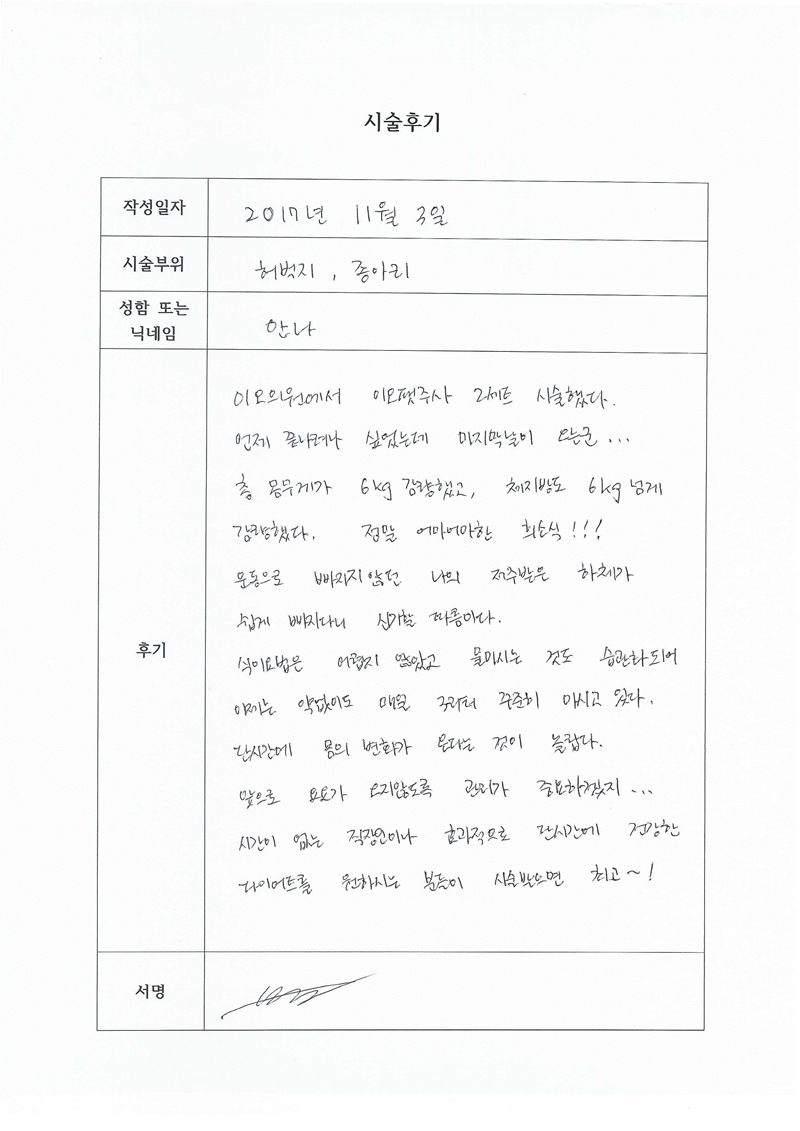 시술후기
작성일자 2017년 11월 3일
시술부위 허벅지, 종아리
성함 또는
닉네임 안나
이오의원에서 이오팻주사 2세트 시술했다.
언제 끝나려나 싶었는데 마지막날이 오는군...
총 몸무게가 6kg 감량했고, 체지방도 6kg 넘게
감량했다. 정말 어마어마한 희소식!!!
운동으로 빠지지않던 나의 저주받은 하체가
쉽게 빠지다니 신기할 따름이다.
식이요법은 어렵지 않았고 물마시는 것도 습관화되어
이제는 약없이도 매일 2리터 꾸준히 마시고 있다.
단시간에 몸의 변화가 온다는 것이 놀랍다.
앞으로 요요가 오지않도록 관리가 중요하겠지...
시간이 없는 직장인이나 효과적으로 단시간에 건강한
다이어트를 원하시는 분들이 시술받으면 최고~!
후기
서명